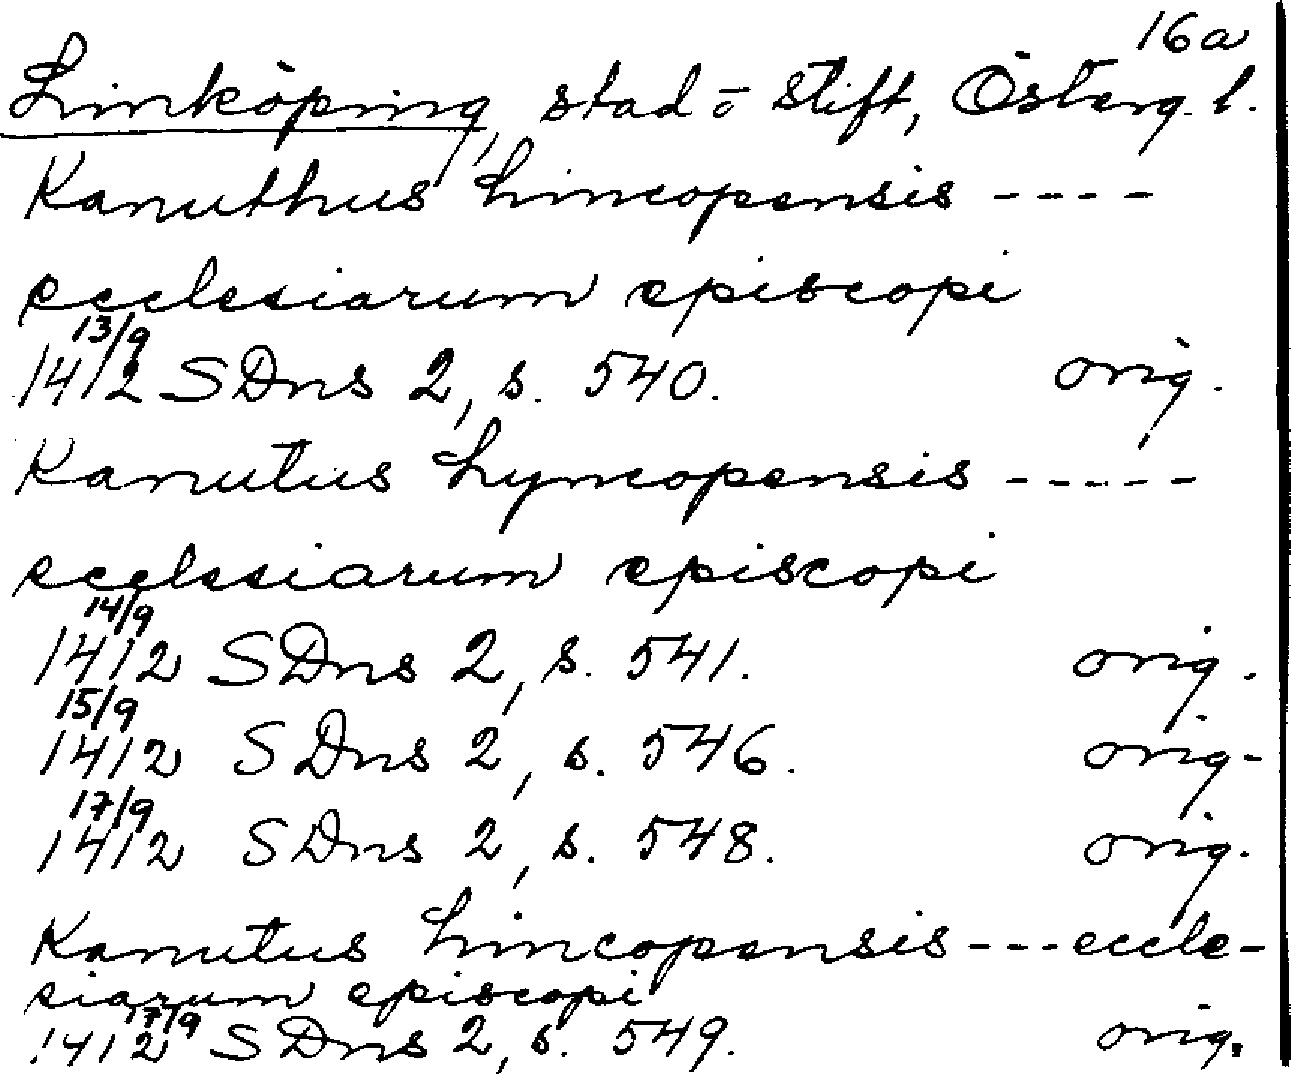 16a
Linköping, stad o stift, Österg. l.
Kanuthus Lincopensis ----
ecclesiarum episcopi
13/9
1412 SDns 2, s. 540. orig.
Kanutus Lyncopensis -----
ecclesiarum episcopi
14/9
1412 SDns 2, s. 541. orig.
15/9
1412 SDns 2, s. 546. orig.
17/9
1412 SDns 2, s. 548. orig.
Kanutus Lincopensis --- eccle-
siarum episcopi
17/9
1412 SDns 2, s. 549. orig.